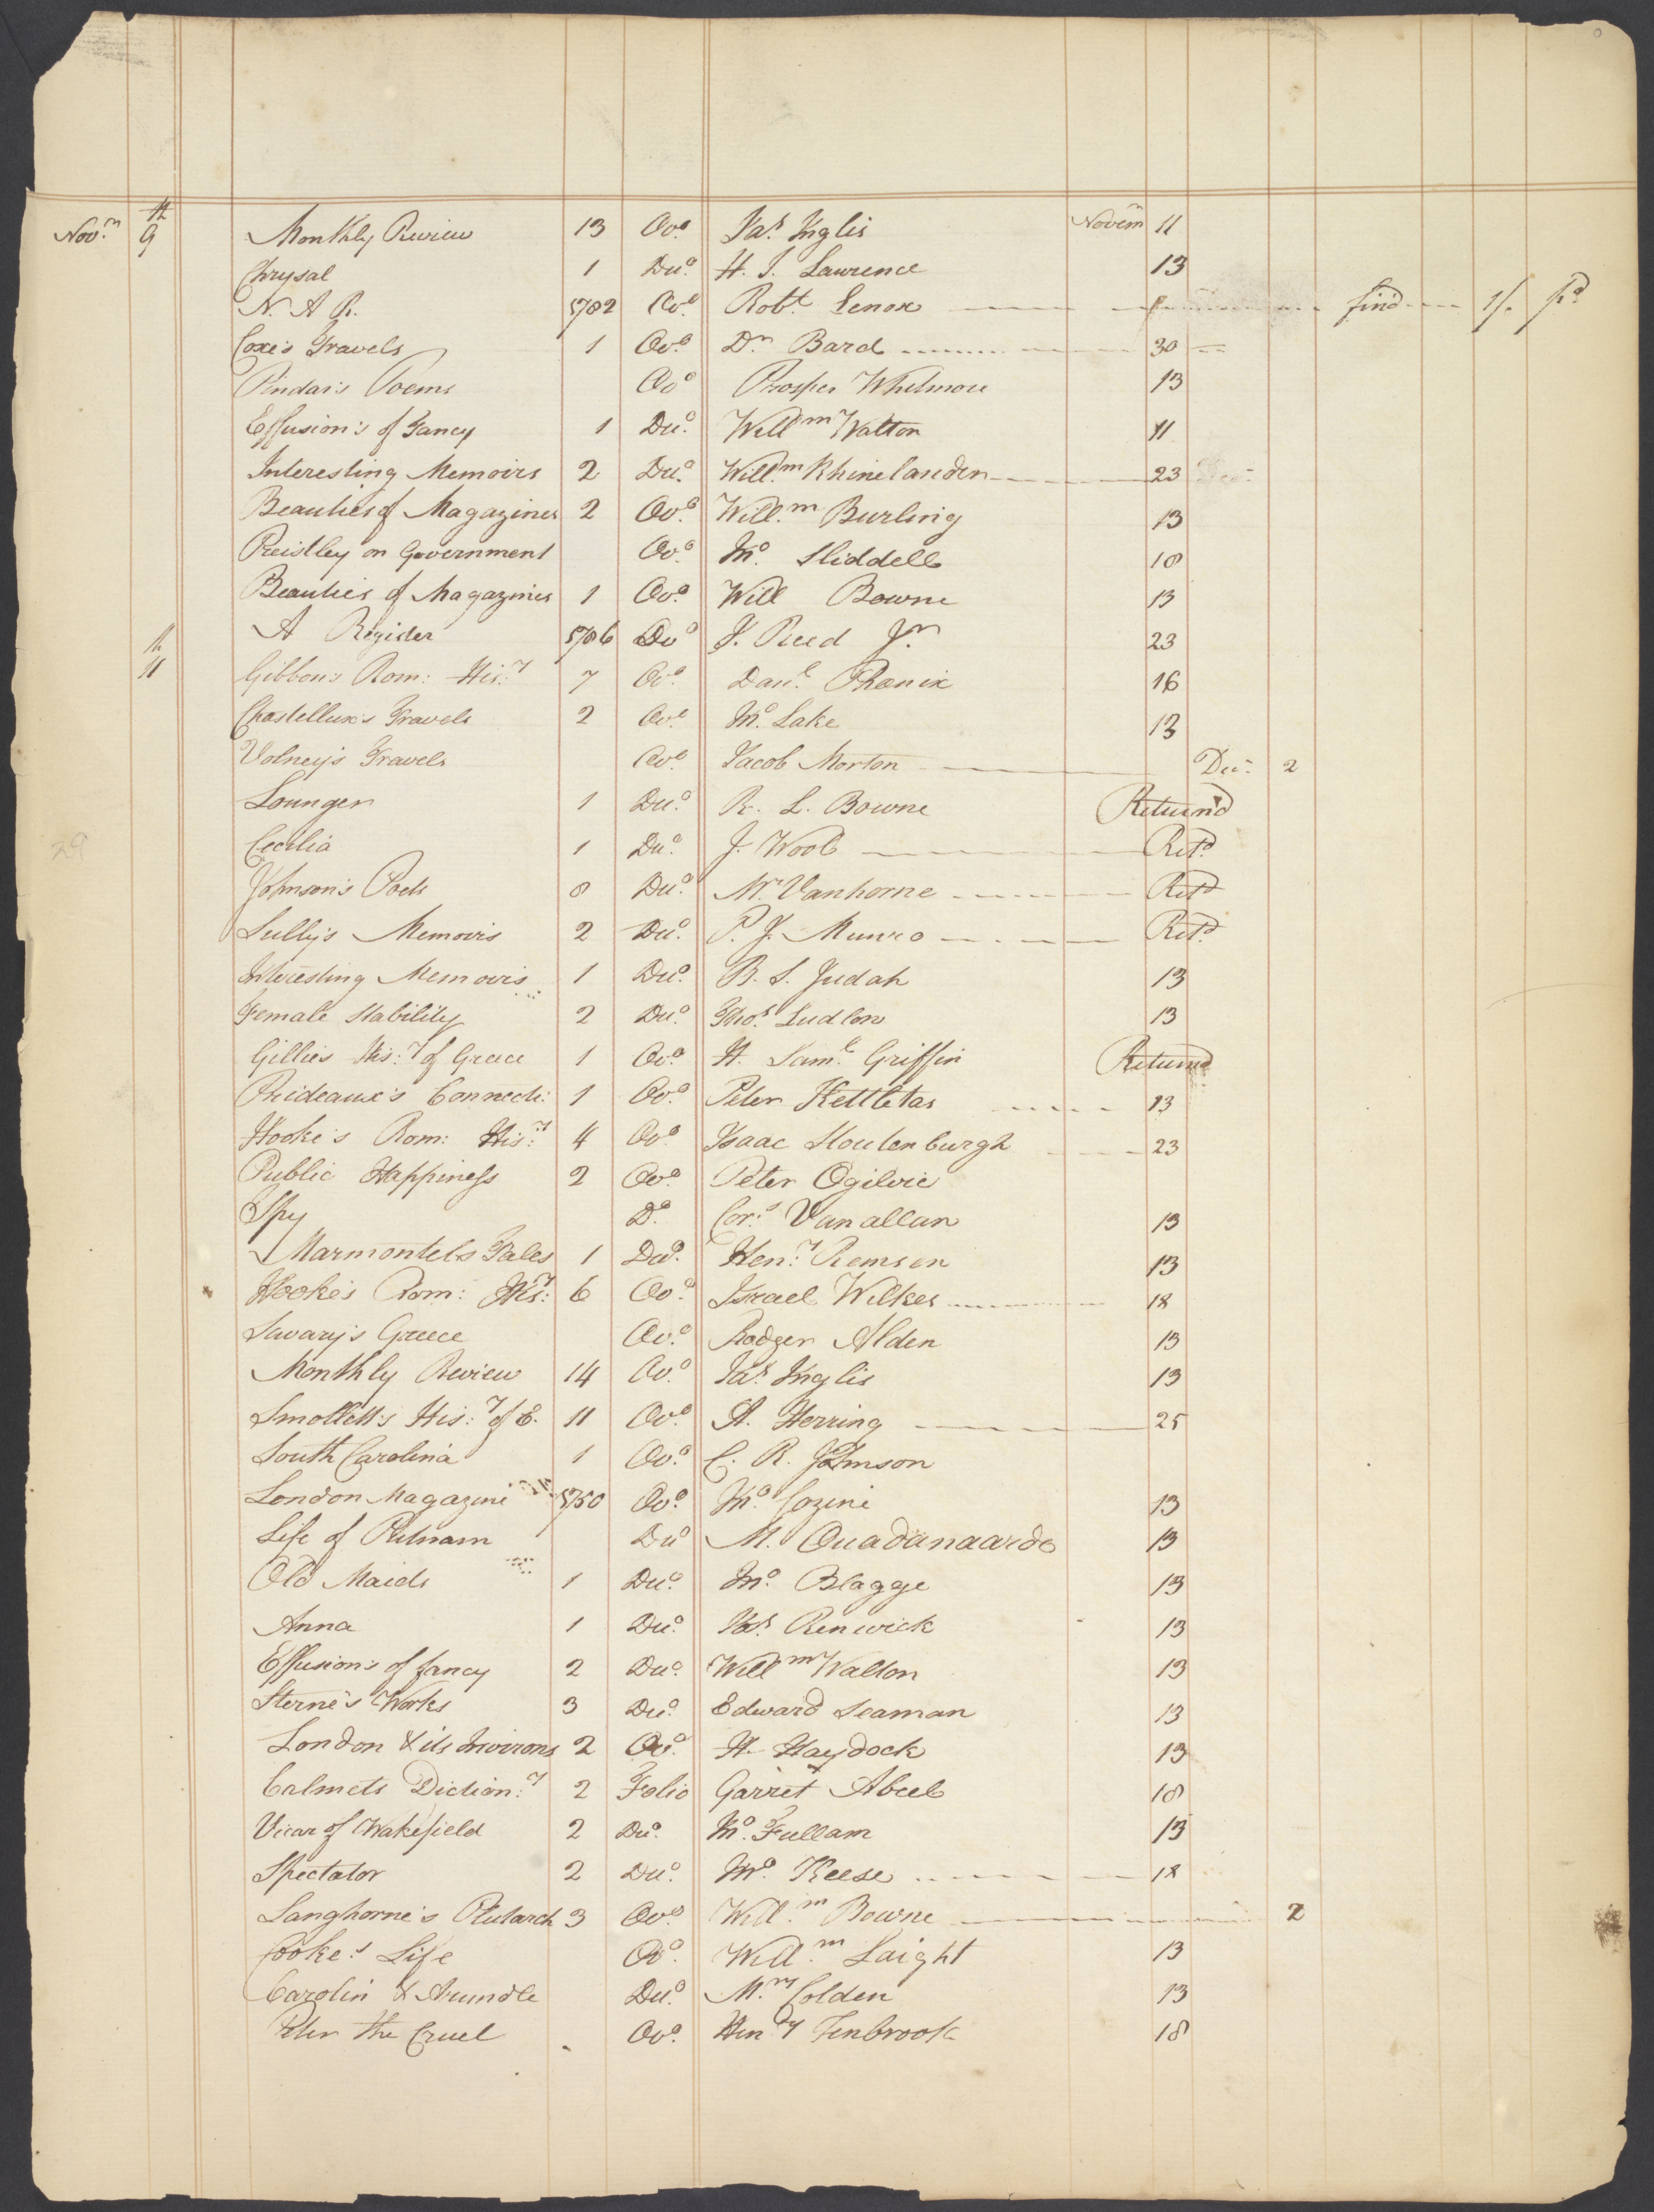 Nov.m 9th Monthly Review 13 Ovo Jas. Inglis Novem 11
Chrysal 1 Duo. H. I. Lawrence 13
N. A R. 1782 Ovo. Robt. Lenox find 1/. pd
Coxe's Travels 1 Ovo. Dr Bard 30
Pindar's Poems Ovo Prosper Whetmore 13
Effusion's of Fancy 1 Duo. Willm Walton 11
Interesting Memoirs 2 Duo. Will.m Rhinelander 23
Beauties of Magazines 2 Ovo. Will.m Burling 13
Preistley on Government Ovo. Jno. Sliddell 18
Beauties of Magazines 1 Ovo. Will Bowne 13
A Register 1786 Ovo J. Reed Jr. 23
11th Gibbon's Rom: His:y 7 Ovo. Danl. Phoenix 16
Chastellux's Travels 2 Ovo. Jno. Lake 13
Volney's Travels Ovo. Jacob Morton Dec: 2
Lounger 1 Duo. R. L. Bowne Return'd
Cecilia 1 Duo. J. Wool Retd.
Johnson's Poets 8 Duo. Mr. Vanhorne Retd
Sully's Memoirs 2 Duo. P. J. Munro Retd.
Interesting Memoirs 1 Duo. B. S. Judah 13
Female Stability 2 Duo. Thos. Ludlow 13
Gillies His:y of Greece 1 Ovo. H. Saml. Griffin Returnd
Prideaux's Connect: 1 Ovo. Peter Kettletas 13
Hooke's Rom: His:y 4 Ovo. Isaac Stoutenburgh 23
Public Happiness 2 Ovo. Peter Ogilvie
Spy Do. Cor.s Vanallan 13
Marmontel's Tales 1 Duo. Hen:y Remsen 13
Hooke's Rom: His:y 6 Ovo. Israel Wilkes 18
Savary's Greece Ovo. Rodger Alden 13
Monthly Review 14 Ovo. Jas. Inglis 13
Smollett's His:y of E. 11 Ovo. A. Herring 25
South Carolina 1 Ovo. C. R. Johnson
London Magazine 1750 Ovo. Jno. Cozine 13
Life of Putnam Duo M. Quadanaardo 13
Old Maids 1 Duo. Jno. Blagge 13
29
Anna 1 Duo. Jas. Renwick 13
Effusion's of fancy 2 Duo. Willm Walton 13
Sterne's Works 3 Duo. Edward Seaman 13
London & its Invirons 2 Ovo. H. Haydock 13
Calmets Diction:y 2 Folio Garret Abeel 18
Vicar of Wakefield 2 Duo. Jno. Fullam 13
Spectator 2 Duo. Jno. Keese 18
Langhorne's Plutarch 3 Ovo. Will.m Bowne 2
Cooke's Life Ovo. Will.m Laight 13
Carolin & Arundle Duo. Mrs Colden 13
Peter the Cruel Ovo. Heny Tenbrook 18